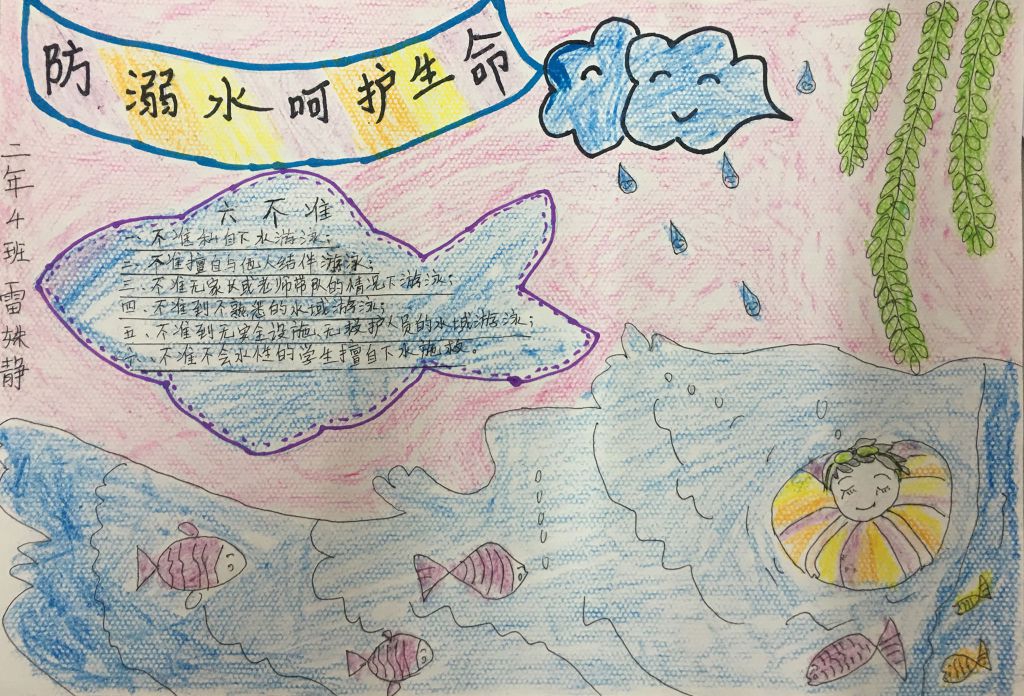 防溺水呵护生命
二年4班雷姝静
六不准
一、不准私自下水游泳;
二、不准擅自与他人结伴游泳;
三、不准无家长或老师带队的情况下游泳;
四、不准到不熟悉的水域游泳;
五、不准到无安全设施、无救护人员的水域游泳;
六、不准不会水性的学生擅自下水施救。